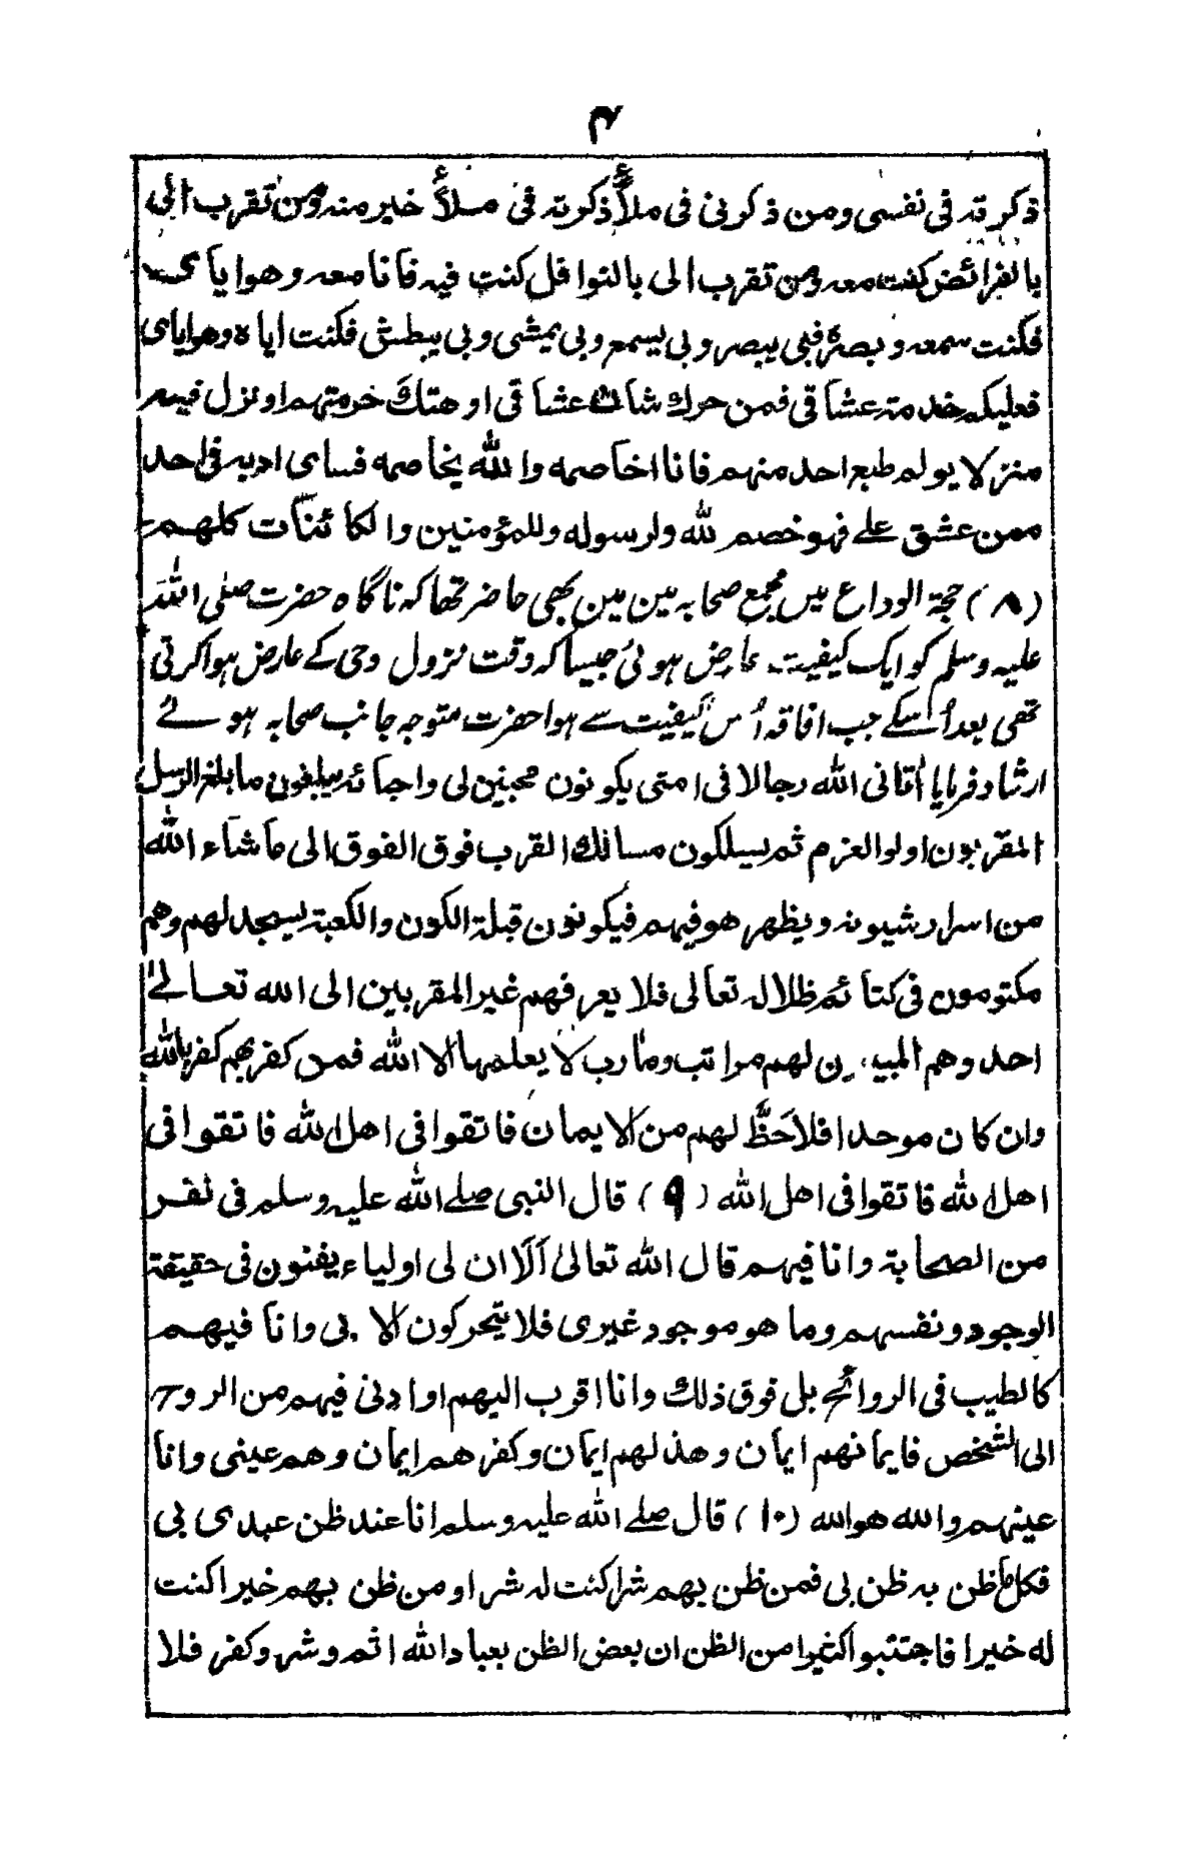 ۴
ذكرته فى نفسى ومن ذكرنى فى ملأٍ ذكرته فى ملأٍ خير منه ومن تقرب الى
بالفرائض كنت معه ومن تقرب الى بالنوافل كنت فيه فانا معه وهو اياى
فكنت سمعه وبصره فبى يبصر وبى يسمع وبى يمشى وبى يبطش فكنت اياه وهو اياى
فعليكم خدمة عشاقى فمن حرك شان عشاقى او هتك حرمتهم او نزل فيهم
منزلا يولم طبع احد منهم فانا اخاصمه والله يخاصمه فساى ادبه فى احد
ممن عشق على فهو خصم لله ولرسوله وللمؤمنين والكائنات كلهم
(۸) حجۃ الوداع میں مجمع صحابہ مین مین بھی حاضر تھا کہ ناگاہ حضرت صلی اللہ
علیہ وسلم کو ایک کیفیت عارض ہوئی جیسا کہ وقت نزول وحی کے عارض ہوا کرتی
تھی بعد اُسکے جب افاقہ اُس کیفیت سے ہوا حضرت متوجہ جانب صحابہ ہوئے
ارشاد فرمایا اٰتانى الله رجالا فى امتى يكونون محبين لى واجائه يبلغون ما بلغ الرسل
المقربون اولوالعزم ثم يسلكون مسالك القرب فوق الفوق الى ماشاء الله
من اسرار شيونه ويظهر هو فيهم فيكونون قبلة الكون والكعبة يسجد لهم وهم
مكتومون فى كتائم ظلاله تعالى فلا يعرفهم غير المقربين الى الله تعالىٰ
احد وهم لهم مراتب ومأرب لا يعلمها الا الله فمن كفر بهم كفر بالله
وان كان موحدا فلا حَظَّ لهم من الايمان فاتقوا فى اهل الله فاتقوا فى
اهل الله فاتقوا فى اهل الله (۹) قال النبى صلے الله عليه وسلم فى نفر
من الصحابة وانا فيهم قال الله تعالىٰ اَلَا ان لى اولياء يفنون فى حقيقة
الوجود ونفسهم وما هو موجود غيرى فلا يتحركون الا بى وانا فيهم
كالطيب فى الروائح بل فوق ذلك وانا اقرب اليهم او ادنى فيهم من الروح
الى الشخص فايمانهم ايمان وهذلهم ايمان وكفرهم ايمان وهم عينى وانا
عينهم والله هو الله (۱۰) قال صلے الله عليه وسلم انا عند ظن عبدى بى
فكل ما ظن به ظن بى فمن ظن بهم شرا كنت له شرا ومن ظن بهم خيرا كنت
له خيرا فاجتنبوا كثيرا من الظن ان بعض الظن بعباد الله اثم وشر وكفر فلا